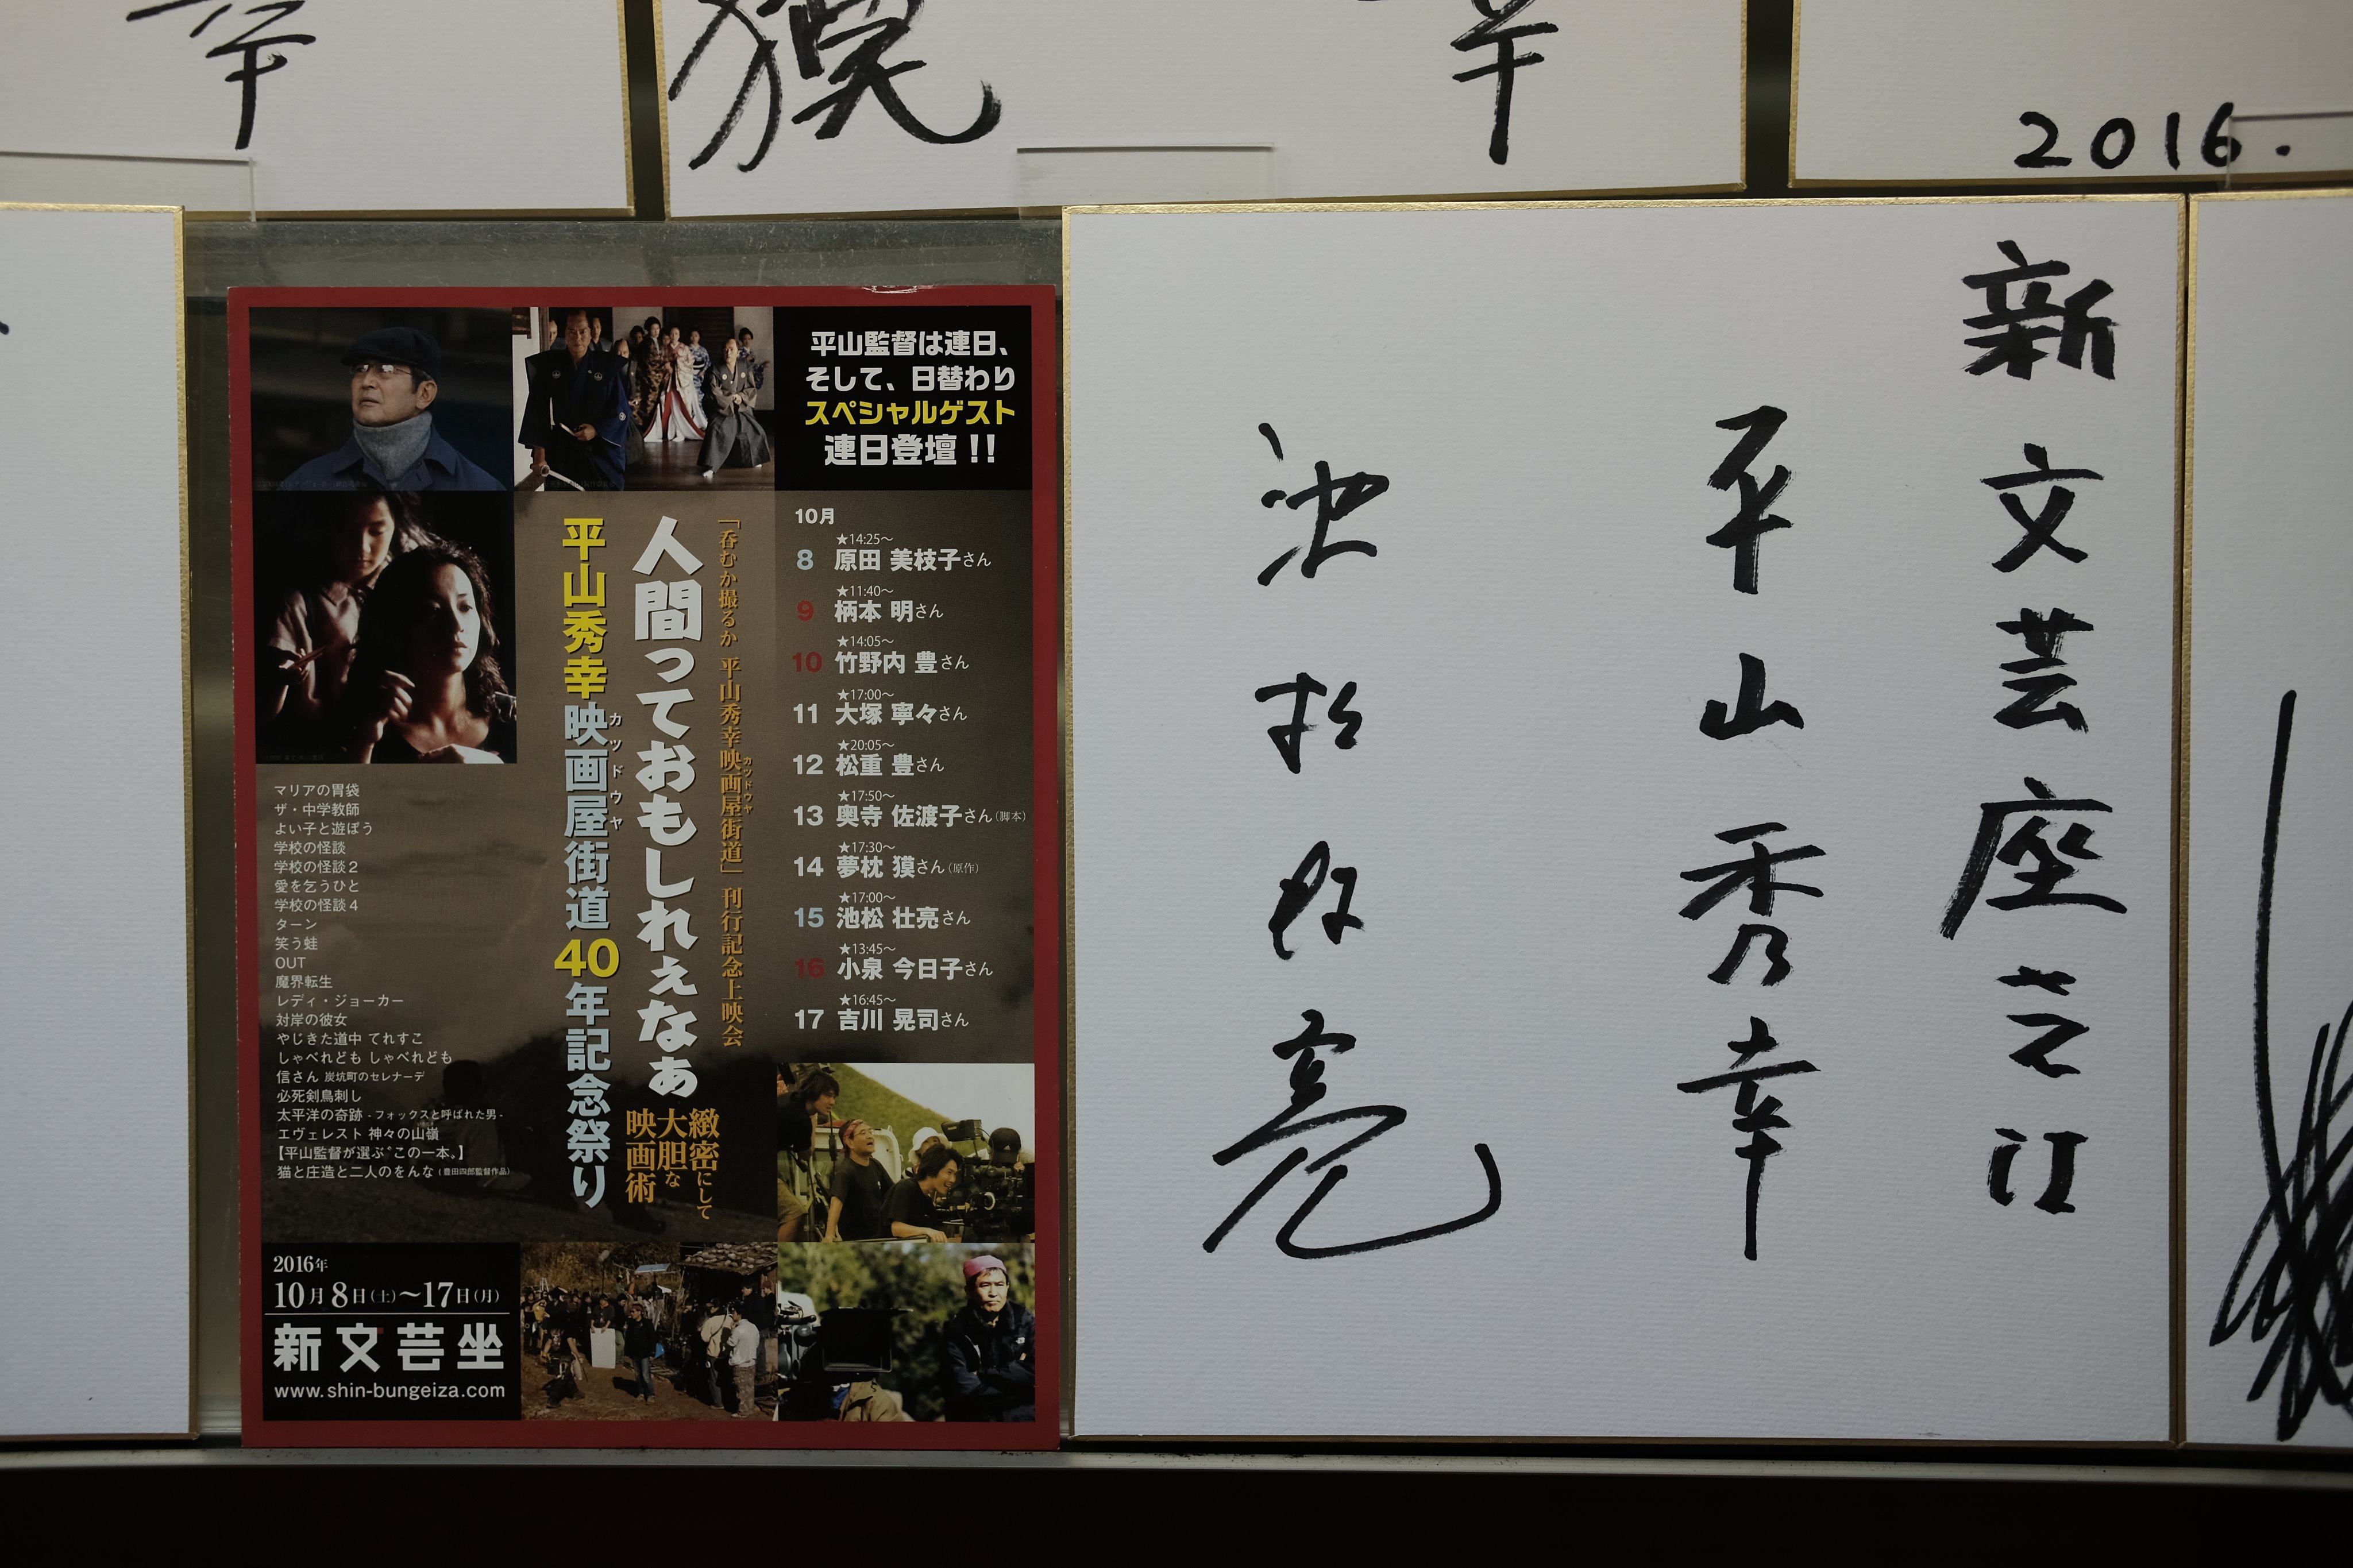 幸
獏
幸
2016.
平山監督は連日、
そして、日替わり
スペシャルゲスト
連日登壇!!
10月
★14:25〜
8 原田 美枝子さん
★11:40〜
9 柄本 明さん
★14:05〜
10 竹野内 豊さん
★17:00〜
11 大塚 寧々さん
★20:05〜
12 松重 豊さん
★17:50〜
13 奥寺 佐渡子さん(脚本)
★17:30〜
14 夢枕 獏さん(原作)
★17:00〜
15 池松 壮亮さん
★13:45〜
16 小泉 今日子さん
★16:45〜
17 吉川 晃司さん
「呑むか撮るか 平山秀幸映画屋街道」刊行記念上映会
カツドウヤ
人間っておもしれぇなぁ
緻密にして
大胆な
映画術
平山秀幸映画屋街道40年記念祭り
カツドウヤ
マリアの胃袋
ザ・中学教師
よい子と遊ぼう
学校の怪談
学校の怪談2
愛を乞うひと
学校の怪談4
ターン
笑う蛙
OUT
魔界転生
レディ・ジョーカー
対岸の彼女
やじきた道中 てれすこ
しゃべれども しゃべれども
信さん 炭坑町のセレナーデ
必死剣鳥刺し
太平洋の奇跡 -フォックスと呼ばれた男-
エヴェレスト 神々の山嶺
【平山監督が選ぶ“この一本。】
猫と庄造と二人のをんな(豊田四郎監督作品)
2016年
10月8日(土)〜17日(月)
新文芸坐
www.shin-bungeiza.com
新文芸座さん江
平山秀幸
池松壮亮